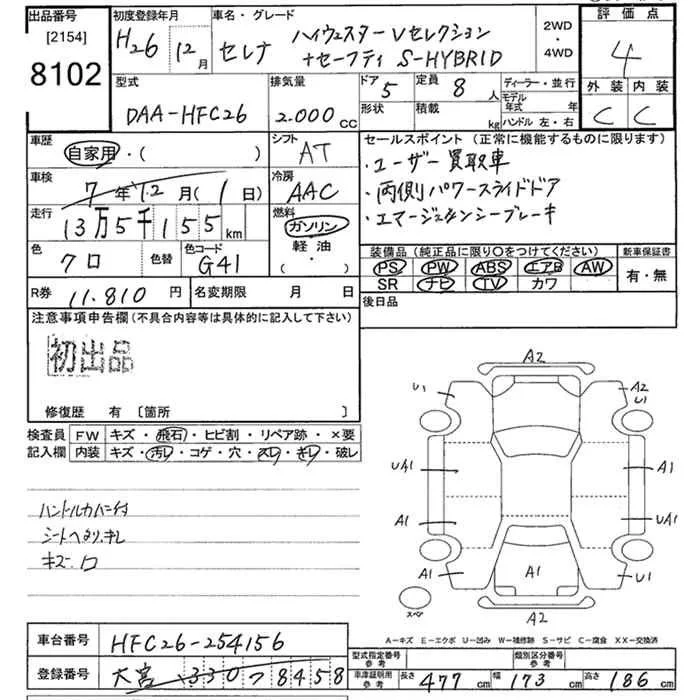 出品番号 初度登録年月 車名・グレード 2WD・4WD 評価点
[2154] 8102
H26年 12月 セレナ ハイウェイスター Vセレクション
+セーフティ S-HYBRID
4
型式 排気量 ドア 定員 ディーラー・並行 外装 内装
DAA-HFC26 2.000cc 5 8人 モデル年式 年 C C
形状 積載 kg ハンドル 左・右
車歴 シフト セールスポイント(正常に機能するものに限ります)
自家用・( ) AT ・ユーザー買取車
車検 冷房 ・両側パワースライドドア
7年12月(1日) AAC ・エマージェンシーブレーキ
走行 燃料
13万5千155km ガソリン
軽油
・( )
色 色替 色コード
クロ G41
装備品(純正品に限り○をつけてください) 新車保証書
PS PW ABS エアB AW 有・無
SR ナビ TV カワ
R券 11.810円 名変期限 月 日 後日品
注意事項申告欄(不具合内容等は具体的に記入して下さい)
初出品
修復歴 有 [箇所 ]
検査員 FW キズ・飛石・ヒビ割・リペア跡・×要
記入欄 内装 キズ・汚レ・コゲ・穴・スレ・キレ・破レ
ハンドルカバー付
シートヘタリ、キレ
A2
U1 A2
U1
UA1 A1
A1 UA1
A1 A1 U1
スペア A2
A-キズ E-エクボ U-凹み W-補修跡 S-サビ C-腐食 XX-交換済
車台番号 HFC26-254156
登録番号 大宮 330 ワ 8458
型式指定番号 参考 類別区分番号 参考
車庫証明用 参考 長さ 477cm 幅 173cm 高さ 186cm